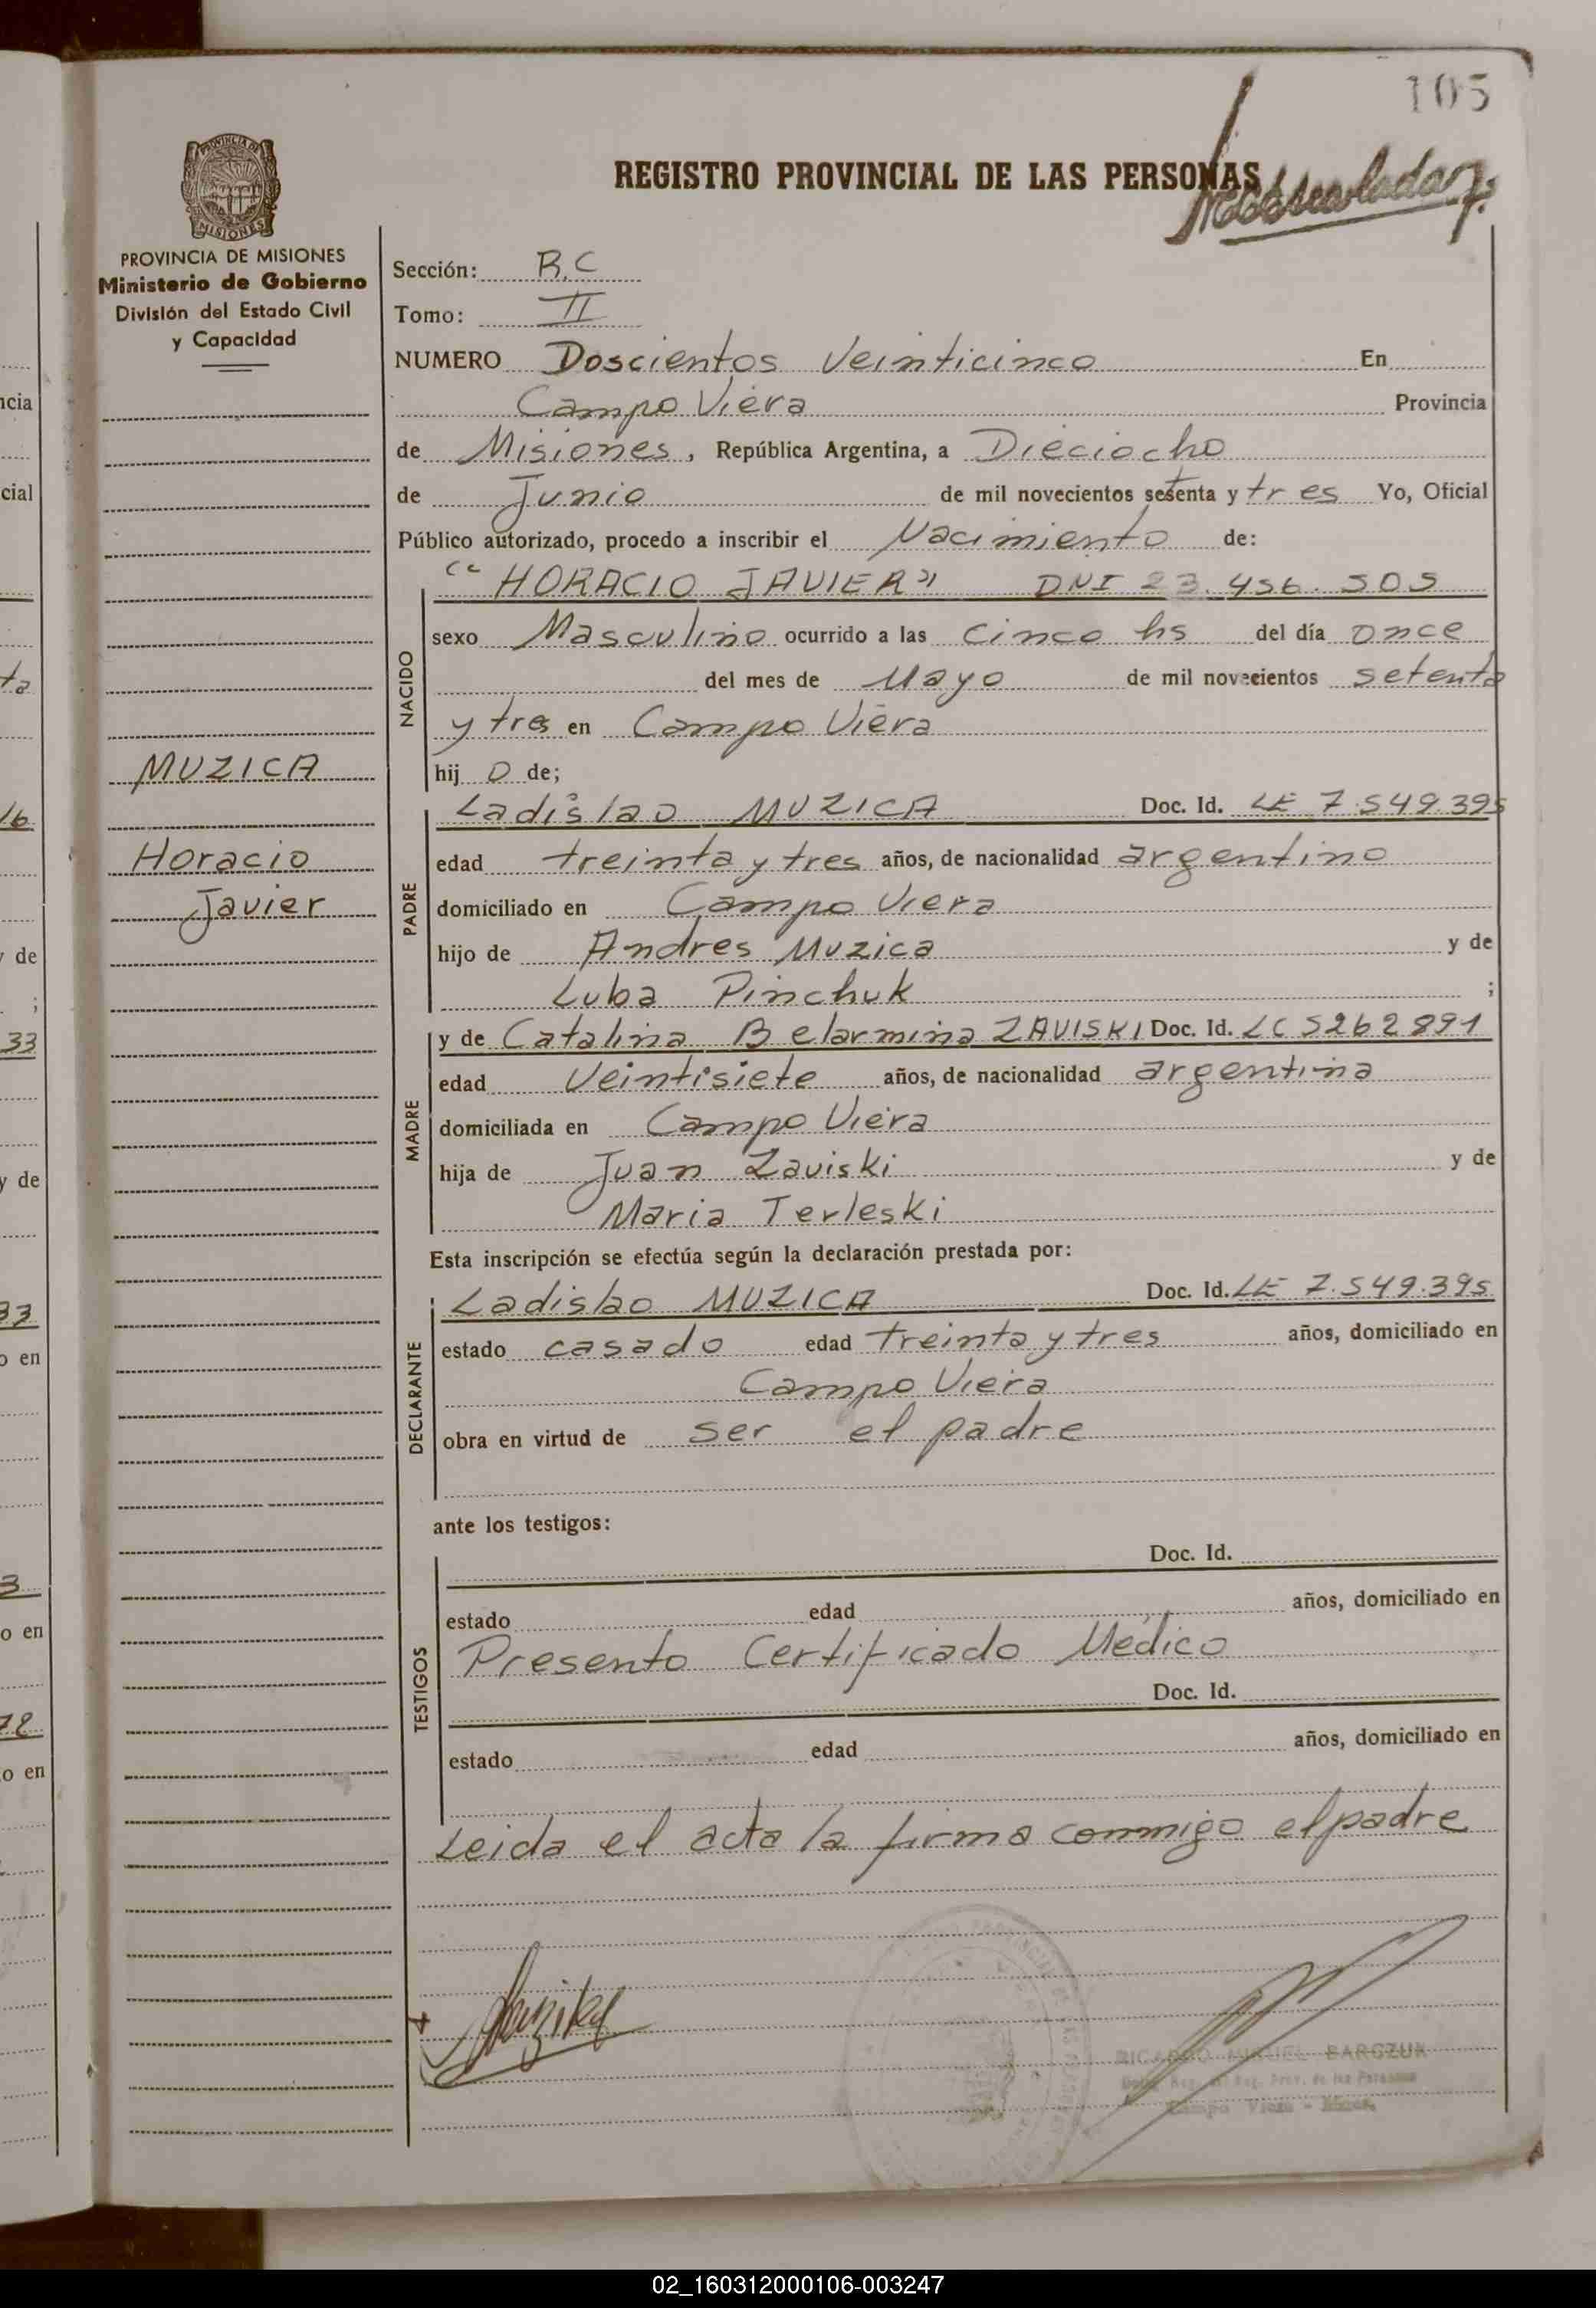 105
REGISTRO PROVINCIAL DE LAS PERSONAS
PROVINCIA DE MISIONES
Ministerio de Gobierno
División del Estado Civil
y Capacidad
MUZICA
Horacio
Javier
Sección: R.C
Tomo: II
NUMERO Doscientos Veinticinco En
Campo Viera Provincia
de Misiones, República Argentina, a Dieciocho
de Junio de mil novecientos setenta y tres Yo, Oficial
Público autorizado, procedo a inscribir el Nacimiento de:
"HORACIO JAVIER" DNI 23.456.505
NACIDO
sexo Masculino ocurrido a las cinco hs del día once
del mes de Mayo de mil novecientos setenta
y tres en Campo Viera
hij o de;
Ladislao MUZICA Doc. Id. LE 7.549.395
PADRE
edad treinta y tres años, de nacionalidad argentino
domiciliado en Campo Viera
hijo de Andres Muzica y de
Luba Pinchuk ;
y de Catalina Belarmina ZAVISKI Doc. Id. LC 5262891
MADRE
edad Veintisiete años, de nacionalidad argentina
domiciliada en Campo Viera
hija de Juan Zaviski y de
Maria Terleski
Esta inscripción se efectúa según la declaración prestada por:
Ladislao MUZICA Doc. Id. LE 7.549.395
DECLARANTE
estado casado edad treinta y tres años, domiciliado en
Campo Viera
obra en virtud de ser el padre
ante los testigos:
Doc. Id.
TESTIGOS
estado edad años, domiciliado en
Presento Certificado Médico
Doc. Id.
estado edad años, domiciliado en
Leida el acta la firma conmigo el padre
RICARDO MIGUEL BARCZUK
Reg. Prov. de las Personas
Campo Viera - Mnes.
02_160312000106-003247